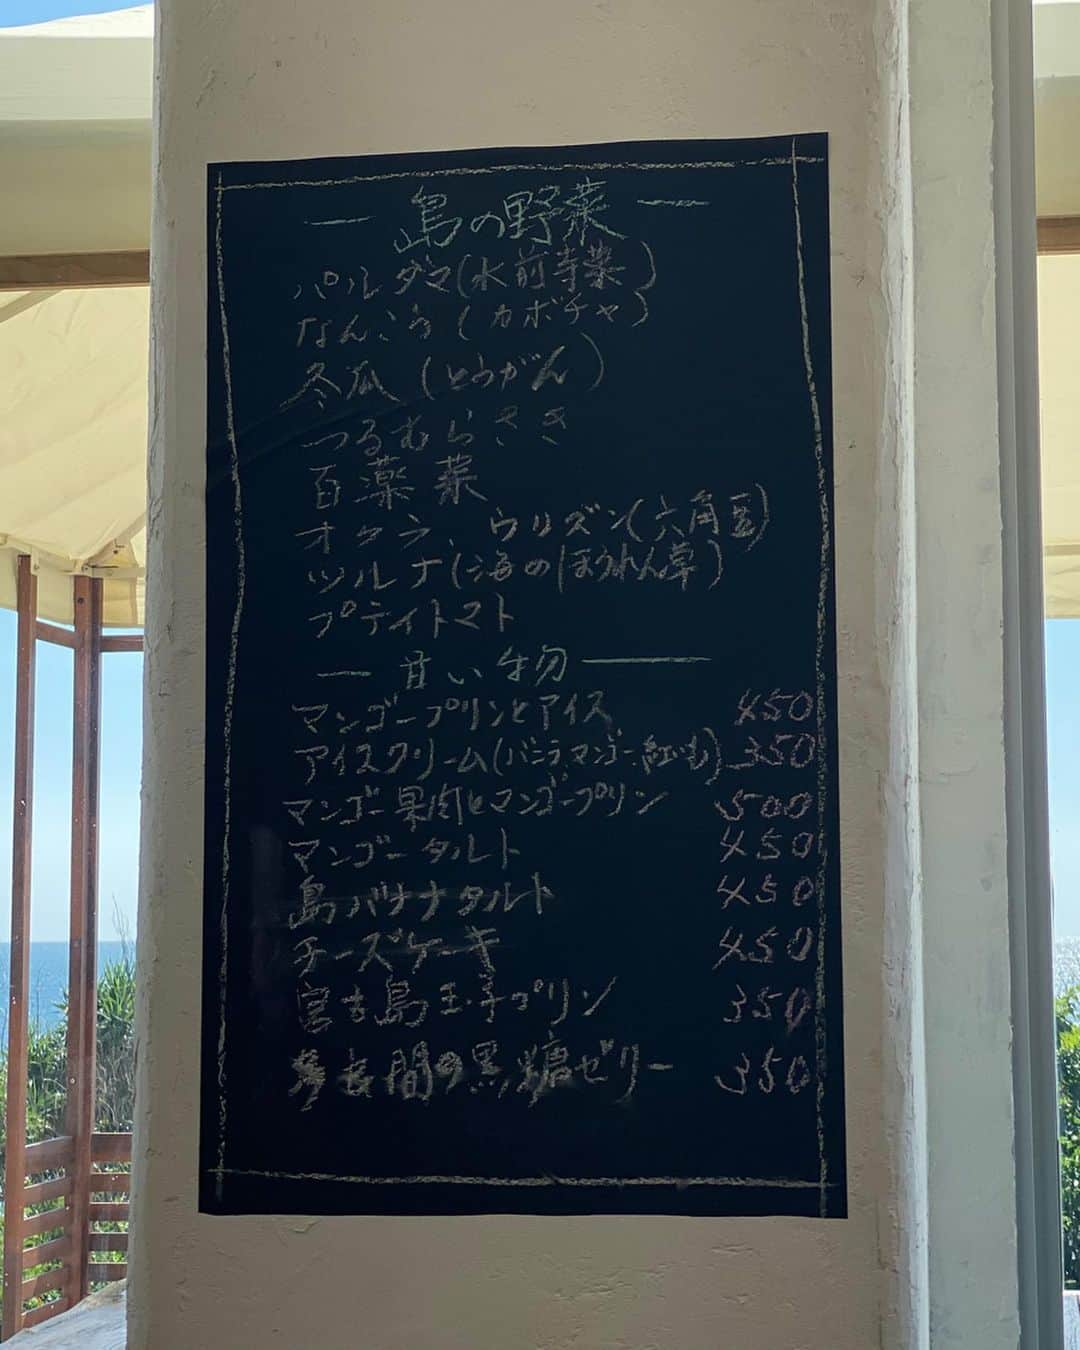 ー 島の野菜 ー
パルダマ(水前寺菜)
なんこう(カボチャ)
冬瓜(とうがん)
つるむらさき
百薬菜
オクラ、ウリズン(六角豆)
ツルナ(海のほうれん草)
プティトマト
ー 甘い物 ー
マンゴープリンとアイス 450
アイスクリーム(バニラ、マンゴー、紅いも) 350
マンゴー果肉とマンゴープリン 500
マンゴータルト 450
島バナナタルト 450
チーズケーキ 450
宮古島玉子プリン 350
多良間の黒糖ゼリー 350